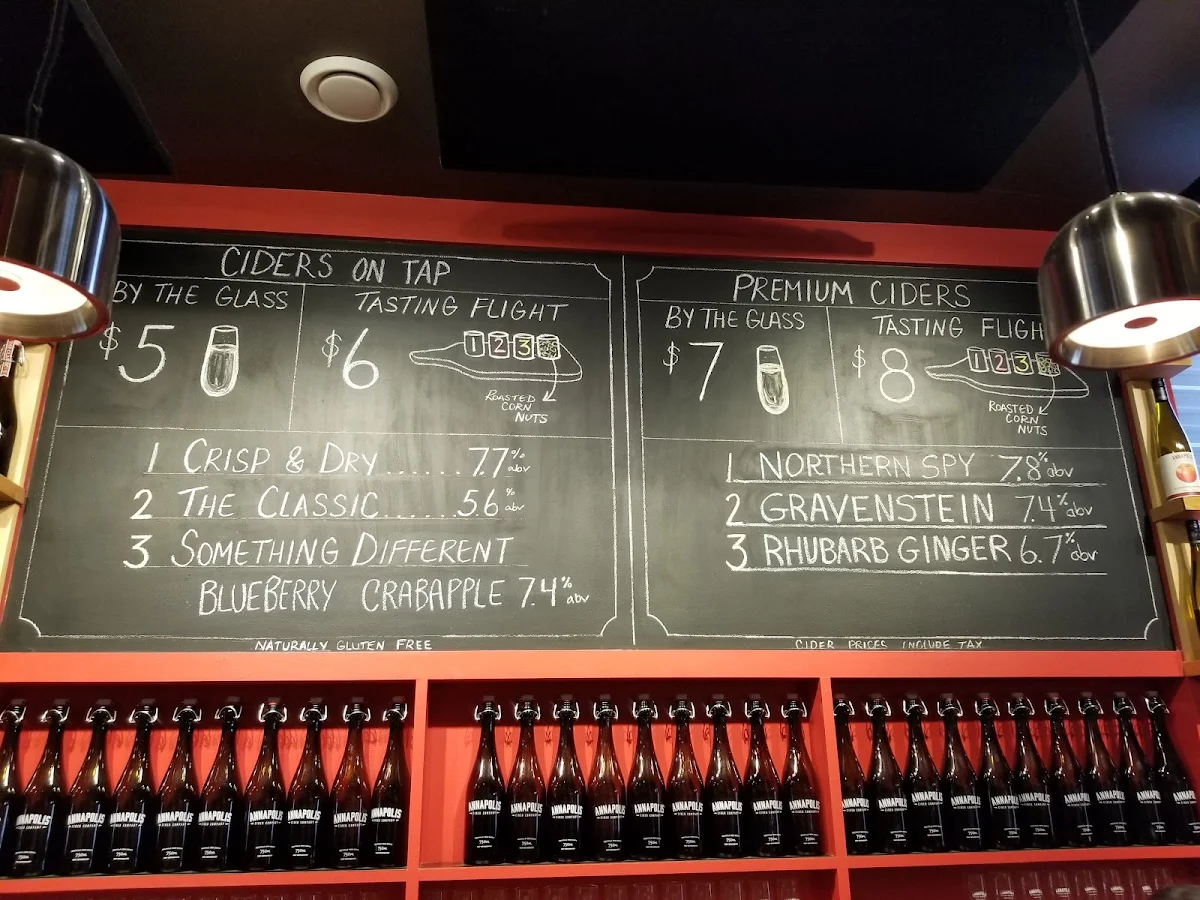 CIDERS ON TAP
BY THE GLASS
$5
TASTING FLIGHT
$6
1 2 3
ROASTED
CORN
NUTS
1 CRISP & DRY...... 7.7% abv
2 THE CLASSIC......5.6% abv
3 SOMETHING DIFFERENT
BLUEBERRY CRABAPPLE 7.4% abv
NATURALLY GLUTEN FREE
PREMIUM CIDERS
BY THE GLASS
$7
TASTING FLIGH
$8
1 2 3
ROASTED
CORN
NUTS
1 NORTHERN SPY 7.8% abv
2 GRAVENSTEIN 7.4% abv
3 RHUBARB GINGER 6.7% abv
CIDER PRICES INCLUDE TAX
ANNAPOLIS
CIDER COMPANY
750mL